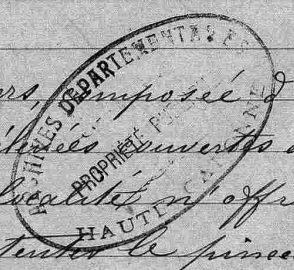 ARCHIVES DÉPARTEMENTALES DE
PROPRIÉTÉ PUBLIQUE
HAUTE GARONNE
composée d
ouvertes
localité n'offr
tentes le pince